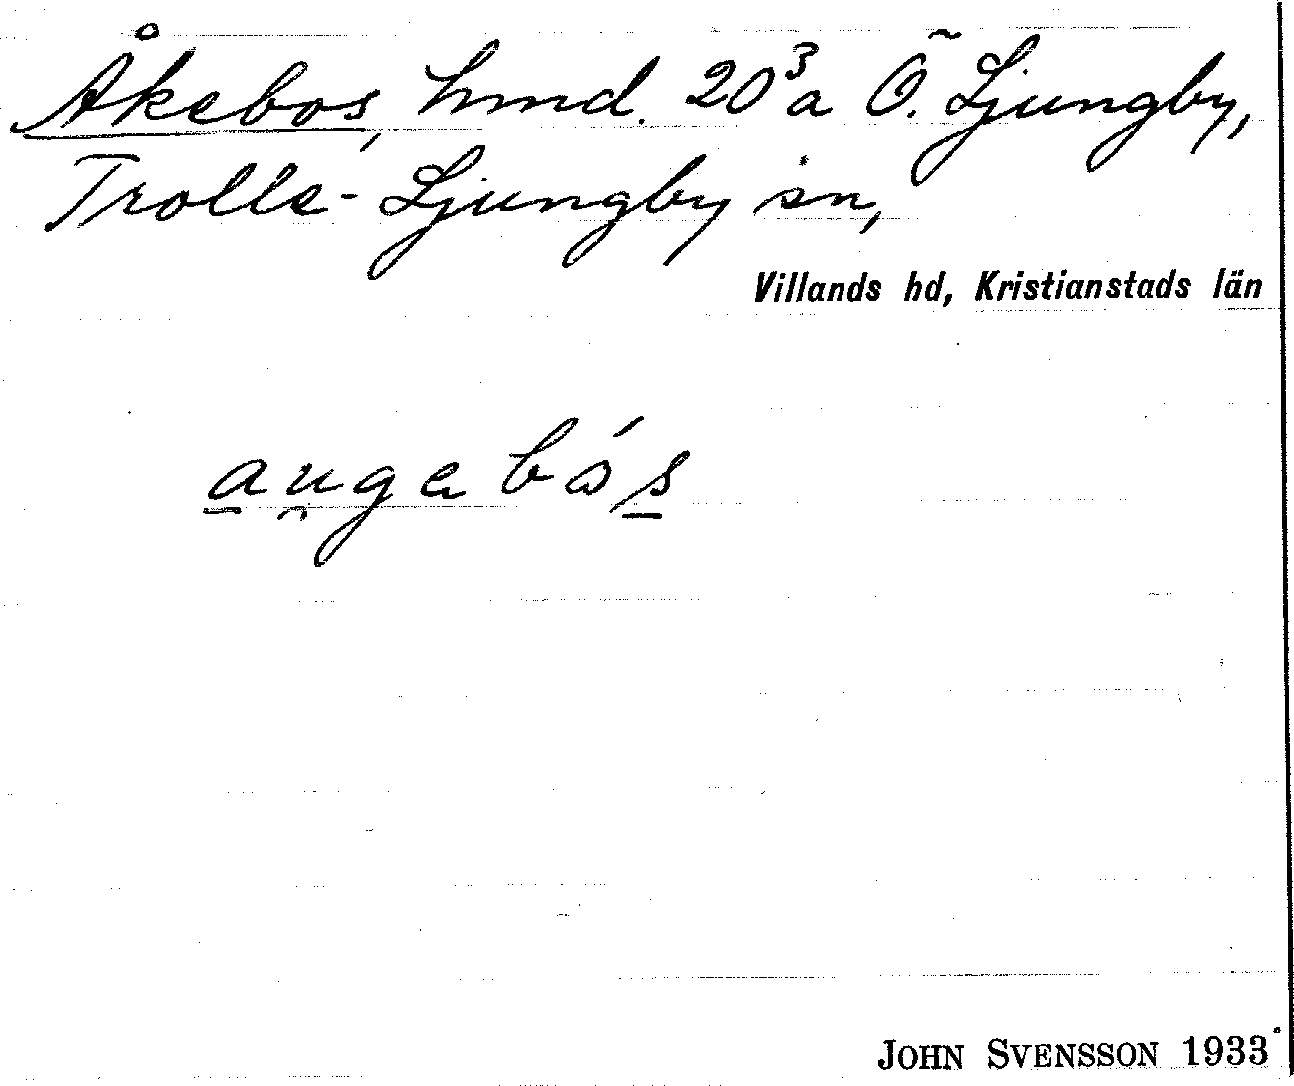 Åkebos, hmd. 20³a Ö. Ljungby,
Trolle-Ljungby sn,
Villands hd, Kristianstads län
a̱u̯gebós̱
JOHN SVENSSON 1933